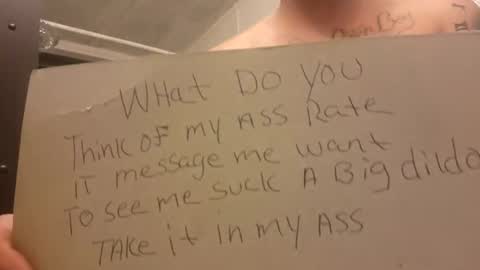 WHAT DO YOU
THINK OF MY ASS RATE
IT MESSAGE ME WANT
TO SEE ME SUCK A BIG dildo
TAKE it IN MY ASS